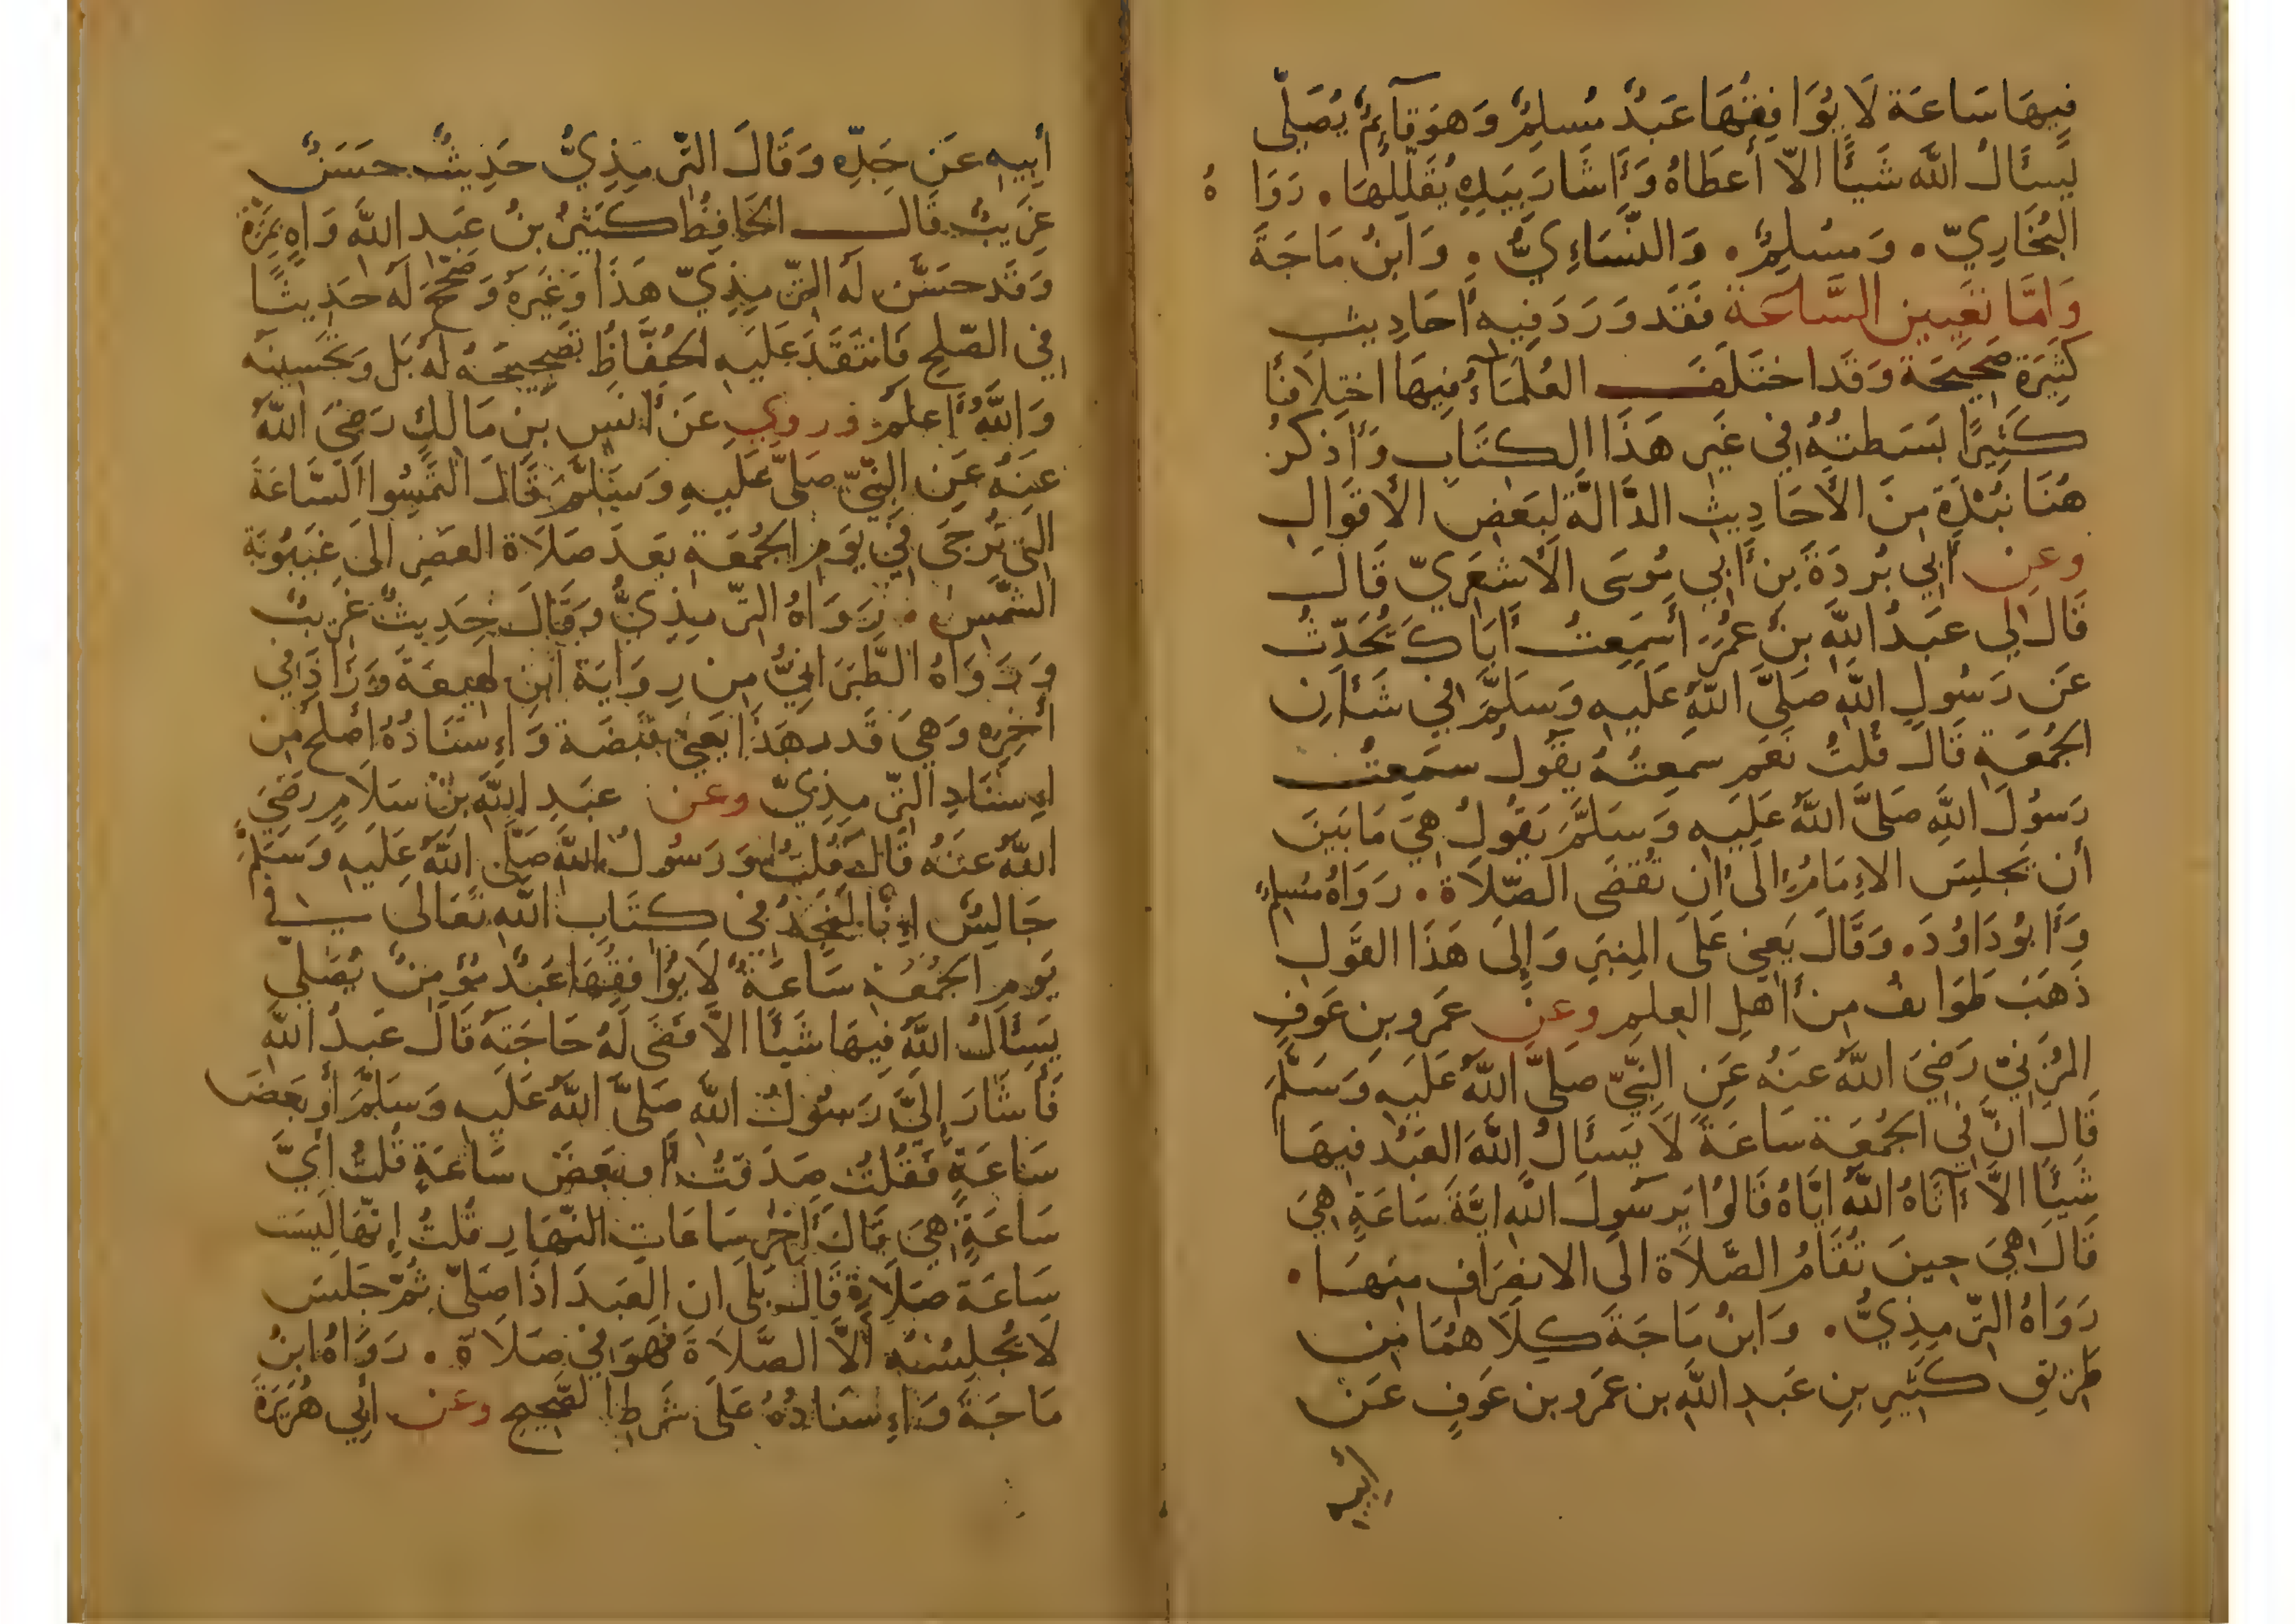 فِيهَا سَاعَة لَا يُوَافِقُهَا عَبْدٌ مُسْلِمٌ وَهوَ قَآئِمٌ يُصَلِّى
يَسْئَالُ اللَّه شَيْأً الاّ أَعطَاهُ وَأَشَارَ بِيَدِهِ يُقَلِّلُهَا . رَوَاهُ
البُخَارِيّ . وَمسْلِمٌ . وَالنَّسَاءِيُّ . وَابنُ مَاجَةَ
وَامَّا تَعْيِين السَّاعَة فَقَد وَرَدَ فِيه أَحَادِيث
كَثِيرَة صَحِيحَة وَقَد اختَلَفَ العُلَمَاءُ فِيهَا اختِلَافًا
كَثِيرًا بَسَطتُهُ فِي غَيرِ هَذَا الكتَابِ وَأَذكُرُ
هُنَا نَبْذَةً مِنَ الأَحَادِيثِ الدَّالَّة لِبَعضِ الأَقوَالِ
وعن أَبي بُردَةَ بن أَبِي مُوسَى الأَشعَرِيّ قَالَ
قَالَ لِي عَبدُ اللَّهِ بنُ عُمَرَ أَسَمِعتَ أَبَاكَ يُحَدِّثُ
عَن رَسُولِ اللَّهِ صَلَّى اللَّهُ عَلَيهِ وَسَلَّمَ فِي شَأنِ
الجُمُعَةِ قَالَ قُلتُ نَعَم سَمِعتُهُ يَقُولُ سَمِعتُ
رَسُولَ اللَّهِ صَلَّى اللَّهُ عَلَيهِ وَسَلَّمَ يَقُولُ هِيَ مَا بَينَ
أَن يَجلِسَ الاِمَامُ إِلَى أَن تُقضَى الصَّلَاة . رَوَاهُ مُسلِمٌ
وَأَبُو دَاوُدَ . وَقَالَ يَعنِي عَلَى المِنبَرِ وَإِلَى هَذَا القَولِ
ذَهَبَ طَوَائفُ مِن أَهلِ العِلمِ وعن عَمرو بنِ عَوفٍ
المُزَنِيّ رَضِيَ اللَّهُ عَنهُ عَنِ النَّبِيّ صَلَّى اللَّهُ عَلَيهِ وَسَلَّمَ
قَالَ انَّ فِي الجُمُعَة سَاعَةً لَا يَسئَالُ اللَّهَ العَبدُ فِيهَا
شَيئًا الاَّ آتَاهُ اللَّهُ ايَّاهُ قَالُوا يَرسُولَ اللَّهِ ايَّةُ سَاعَةٍ هِيَ
قَالَ هِيَ حِينَ تُقَامُ الصَّلَاة الَى الانصِرَافِ مِنهَا .
رَوَاهُ التِّرمِذِيُّ . وَابنُ مَاجَةَ كِلَا هُمَا مِن
طَرِيقِ كَثِيرِ بنِ عَبدِ اللَّهِ بن عَمرو بن عَوفٍ عَن
أَبِيه
أَبِيه عَن جَدِّه وَقَالَ التِّرمِذِيُّ حَدِيثٌ حَسَنٌ
غَرِيبٌ قَالَ الحَافِظُ كَثِيرُ بنُ عَبدِ اللَّه وَاهٍ بِمَرَّة
وَقَد حَسَّنَ لَه التِّرمِذِيّ هَذَا وَغَيرَهُ وَصَحَّحَ لَه حَدِيثًا
فِي الصّلحِ فَانتَقَدَ عَلَيهِ الحُفَّاظُ تَصحِيحَهُ لَهُ بَل وَتَحسِينَه
وَاللَّهُ أَعلَم وروي عَن أَنَسِ بنِ مَالِكٍ رَضِيَ اللَّهُ
عَنهُ عَنِ النَّبِيّ صَلَّى عَلَيهِ وَسَلَّمَ قَالَ التَمِسُوا السَّاعَةَ
الَّتِي تُرجَى فِي يَومِ الجُمُعَة بَعدَ صَلَاة العَصرِ الَى غَيبُوبَة
الشَّمسِ . رَوَاهُ التِّرمِذِيُّ وَقَالَ حَدِيثٌ غَرِيبٌ
وَرَوَاهُ الطَّبَرَانِيُّ مِن رِوَايَة ابنِ لَهِيعَة وَزَاد فِي
أَخِرِه وَهِيَ قَدر هَذَا يَعنِي قَبضَة وَاِسنَادُهُ أَصلَح مِن
اِسنَادِ التِّرمِذِيّ وعن عَبدِ اللَّه بنُ سَلَامٍ رَضِيَ
اللَّهُ عَنهُ قَالَ قُلتُ وَرَسُولُ اللَّهِ صَلَّى اللَّهُ عَلَيهِ وَسَلَّمَ
جَالِسٌ اِنَّا لَنَجِدُ فِي كتَابِ اللَّهِ تَعَالَى فِي
يَومِ الجُمُعَة سَاعَةٌ لَا يُوَافِقُهَا عَبدٌ مُؤمِنٌ يُصَلِّي
يَسئَالُ اللَّهَ فِيهَا شَيئًا الاَّ قَضَى لَهُ حَاجَتَه قَالَ عَبدُ اللَّه
فَأَشَارَ إِلَيَّ رَسُولُ اللَّهِ صَلَّى اللَّهُ عَلَيهِ وَسَلَّمَ أَو بَعضَ
سَاعَةٍ فَقُلتُ صَدَقتَ أَو بَعضَ سَاعَةٍ قُلتُ أَيَّ
سَاعَةٍ هِيَ قَالَ أَخِرُ سَاعَاتِ النَّهَارِ قُلتُ إِنَّهَا لَيسَت
سَاعَةَ صَلَاةٍ قَالَ بَلَى ان العَبدَ اذَا صَلَّى ثُمَّ جَلَسَ
لَا يُجلِسُهُ أَلاَّ الصَّلَاةَ فَهوَ فِي صَلَاة . رَوَاهُ ابنُ
مَاجَةَ وَاِسنَادُهُ عَلَى شَرطِ الصَّحِيحِ وعن أَبِي هُرَيرَةَ